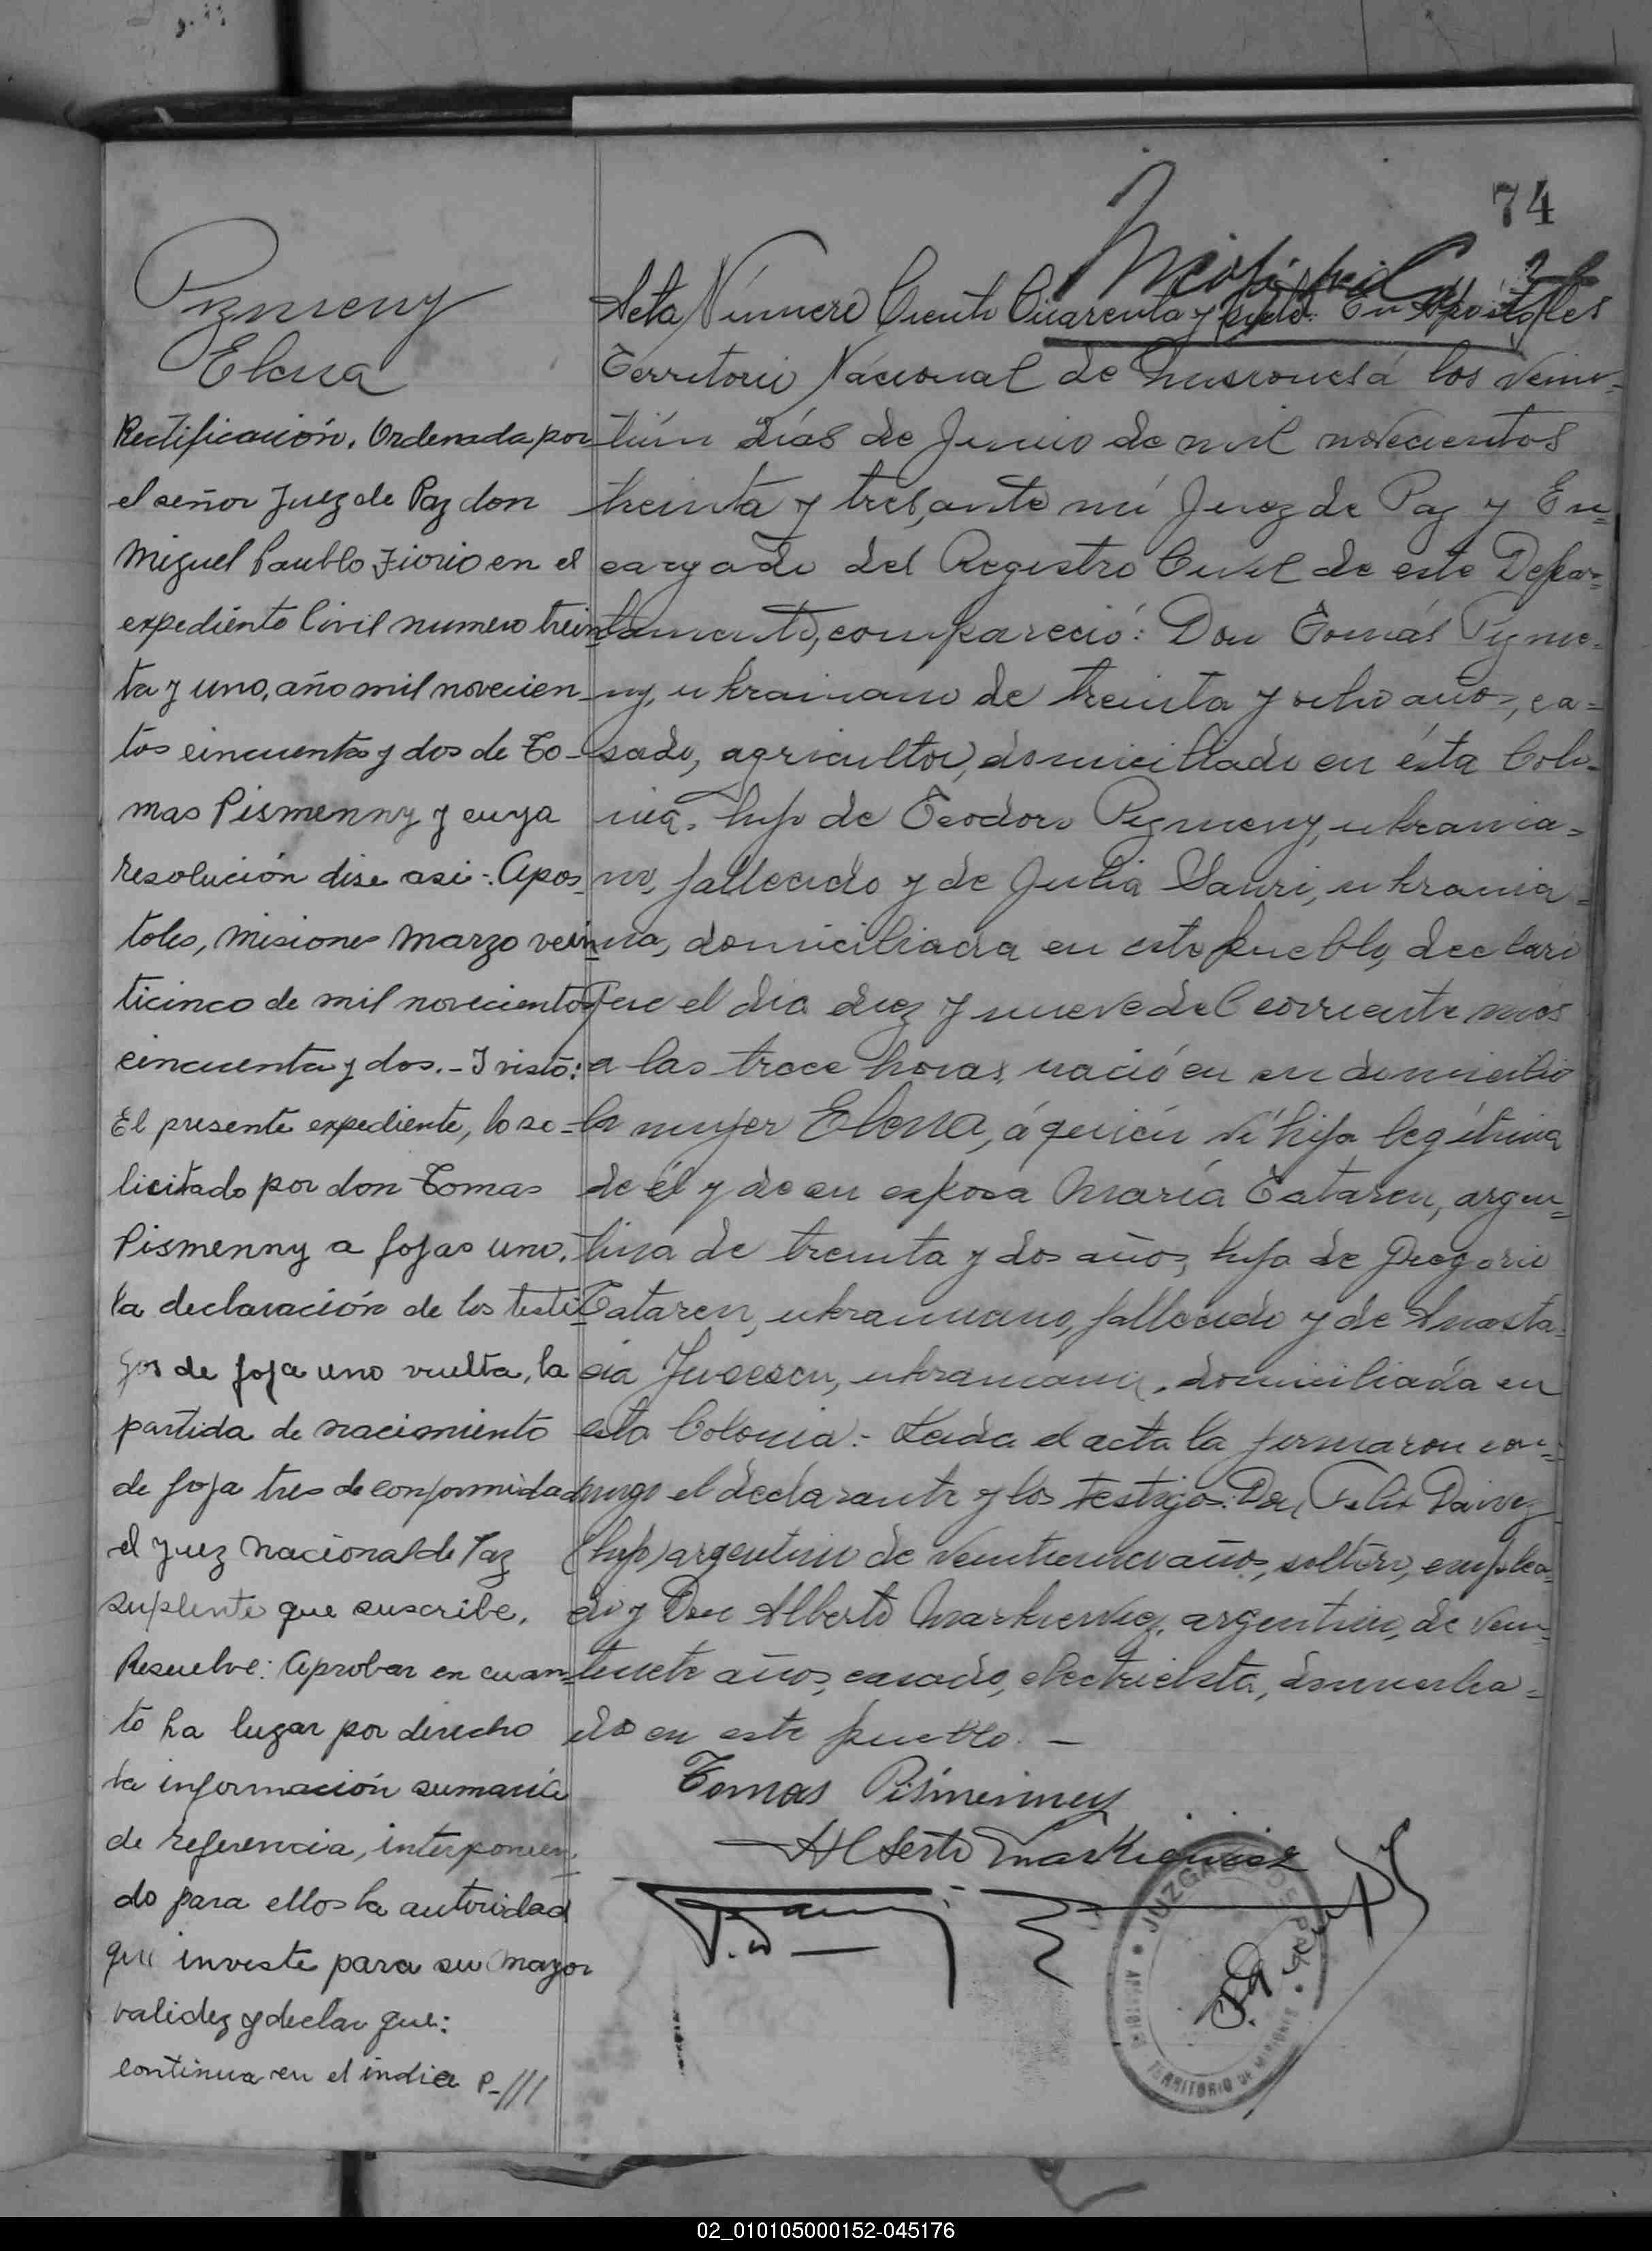 74
Pizmeny
Elena
Rectificación. Ordenada por
el señor Juez de Paz don
Miguel Paublo Fiorio en el
expediente Civil numero trein
ta y uno, año mil novecien-
tos cincuenta y dos de To-
mas Pismenny y cuya
resolución dise asi-: Apos-
toles, Misiones Marzo vein
ticinco de mil novecientos
cincuenta y dos.- I visto:
El presente expediente, lo so-
licitado por don Tomas
Pismenny a fojas uno.
la declaración de los testi-
gos de foja uno vuelta, la
partida de nacimiento
de foja tres de conformidad
el Juez Nacional de Paz
suplente que suscribe.
Resuelve: Aprobar en cuan-
to ha lugar por derecho
la información sumaria
de referencia, interponien-
do para ellos la autoridad
que investe para su mayor
validez y declar que:
continua en el indice P-///
Acta Número Ciento Cuarenta y En Apóstoles
Territorio Nacional de Misiones á los vein-
tiún días de Junio de mil novecientos
treinta y tres, ante mí Juez de Paz y En-
cargado del Registro Civil de este Depar-
tamento, compareció: Don Tomás Pizme-
ny, ukraniano de treinta y ocho años, ca-
sado, agricultor, domiciliado en ésta Colo-
nia, hijo de Teodoro Pizmeny, ukrania-
no, fallecido y de Julia Sauri, ukrania-
na, domiciliada en este pueblo, declaró
Que el dia diez y nueve del corriente mes
a las trece horas, nació en su domicilio
la mujer Elena, á quién ví hija legítima
de él y de su esposa María Tataren, argen-
tina de treinta y dos años, hija de Gregorio
Tataren, ukraniano, fallecido y de Anasta-
sia ukraniana, domiciliada en
esta Colonia.- Leida el acta la firmaron con-
migo el declarante y los testigos: Don Felix Dawez
(hijo) argentino de años, soltero, emplea-
do y Don Alberto Markievicz, argentino, de vein-
tisiete años, casado, electricista, domicilia-
do en este pueblo. -
Tomas Pismenney
Alberto Markievicz
JUZGADO DE PAZ
APOSTOLES
TERRITORIO DE MISIONES
02_010105000152-045176